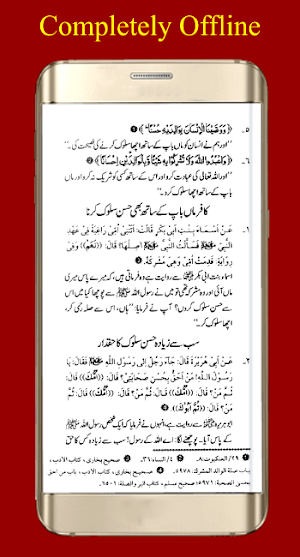 Completely Offline
۵۔ ﴿وَوَصَّيْنَا الْإِنسَانَ بِوَالِدَيْهِ حُسْنًا﴾ ❶
”اور ہم نے انسان کو ماں باپ کے ساتھ اچھا سلوک کرنے کی نصیحت کی۔“
۶۔ ﴿وَاعْبُدُوا اللَّهَ وَلَا تُشْرِكُوا بِهِ شَيْئًا وَبِالْوَالِدَيْنِ إِحْسَانًا﴾ ❷
”اور اللہ تعالٰی کی عبادت کرو اور اس کے ساتھ کسی کو شریک نہ کرو اور ماں
باپ کے ساتھ اچھا سلوک کرو۔“
کافر ماں باپ کے ساتھ بھی حسن سلوک کرنا
۱۔ عَنْ أَسْمَاءَ بِنْتِ أَبِي بَكْرٍ قَالَتْ: أَتَتْنِي أُمِّي رَاغِبَةً فِي عَهْدِ
النَّبِيِّ ﷺ فَسَأَلْتُ النَّبِيَّ ﷺ أَصِلُهَا؟ قَالَ: ((نَعَمْ)) وَفِي
رِوَايَةٍ: قَدِمَتْ أُمِّي وَهِيَ مُشْرِكَةٌ. ❸
اسماء بنت ابی بکر سے روایت ہے وہ فرماتی ہیں، کہ میرے پاس میری
ماں آئی اور وہ مشرکہ تھی تو میں نے رسول اللہ ﷺ سے پوچھا کیا میں اس
سے حسن سلوک کروں؟ آپ نے فرمایا: ”ہاں، اس سے صلہ رحمی کر،
اچھا سلوک کر۔“
سب سے زیادہ حسن سلوک کا حقدار
۲۔ عَنْ أَبِي هُرَيْرَةَ قَالَ: جَاءَ رَجُلٌ إِلَى رَسُولِ اللَّهِ ﷺ فَقَالَ: يَا
رَسُولَ اللَّهِ! مَنْ أَحَقُّ بِحُسْنِ صَحَابَتِي؟ قَالَ: ((أُمُّكَ)) قَالَ: ثُمَّ
مَنْ؟ قَالَ: ((أُمُّكَ)) قَالَ: ثُمَّ مَنْ؟ قَالَ: ((أُمُّكَ)) قَالَ: ثُمَّ
مَنْ؟ قَالَ: ((ثُمَّ أَبُوكَ)). ❹
ابو ہریرہ سے روایت ہے، انہوں نے فرمایا کہ ایک شخص رسول اللہ ﷺ
کے پاس آیا۔ پوچھنے لگا: اے اللہ کے رسول! سب سے زیادہ کس کا حق
❶ ۲۹/ العنكبوت: ۸۔ ❷ ۴/ النساء: ۳۶۔ ❸ صحیح بخاری، کتاب الادب،
باب صلة الوالد المشرك: ۵۹۷۸۔ ❹ صحیح بخاری، کتاب الادب، باب من احق
بحسن الصحبة: ۵۹۷۱؛ صحیح مسلم، کتاب البر والصلة: ۶۵۰۱۔